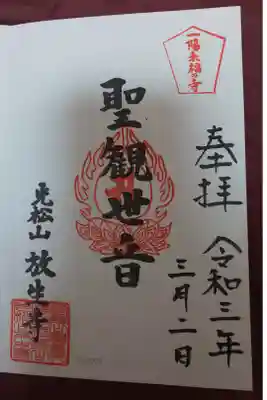 一陽来福の寺
奉拝
令和三年
三月二日
聖観世音
光松山
放生寺